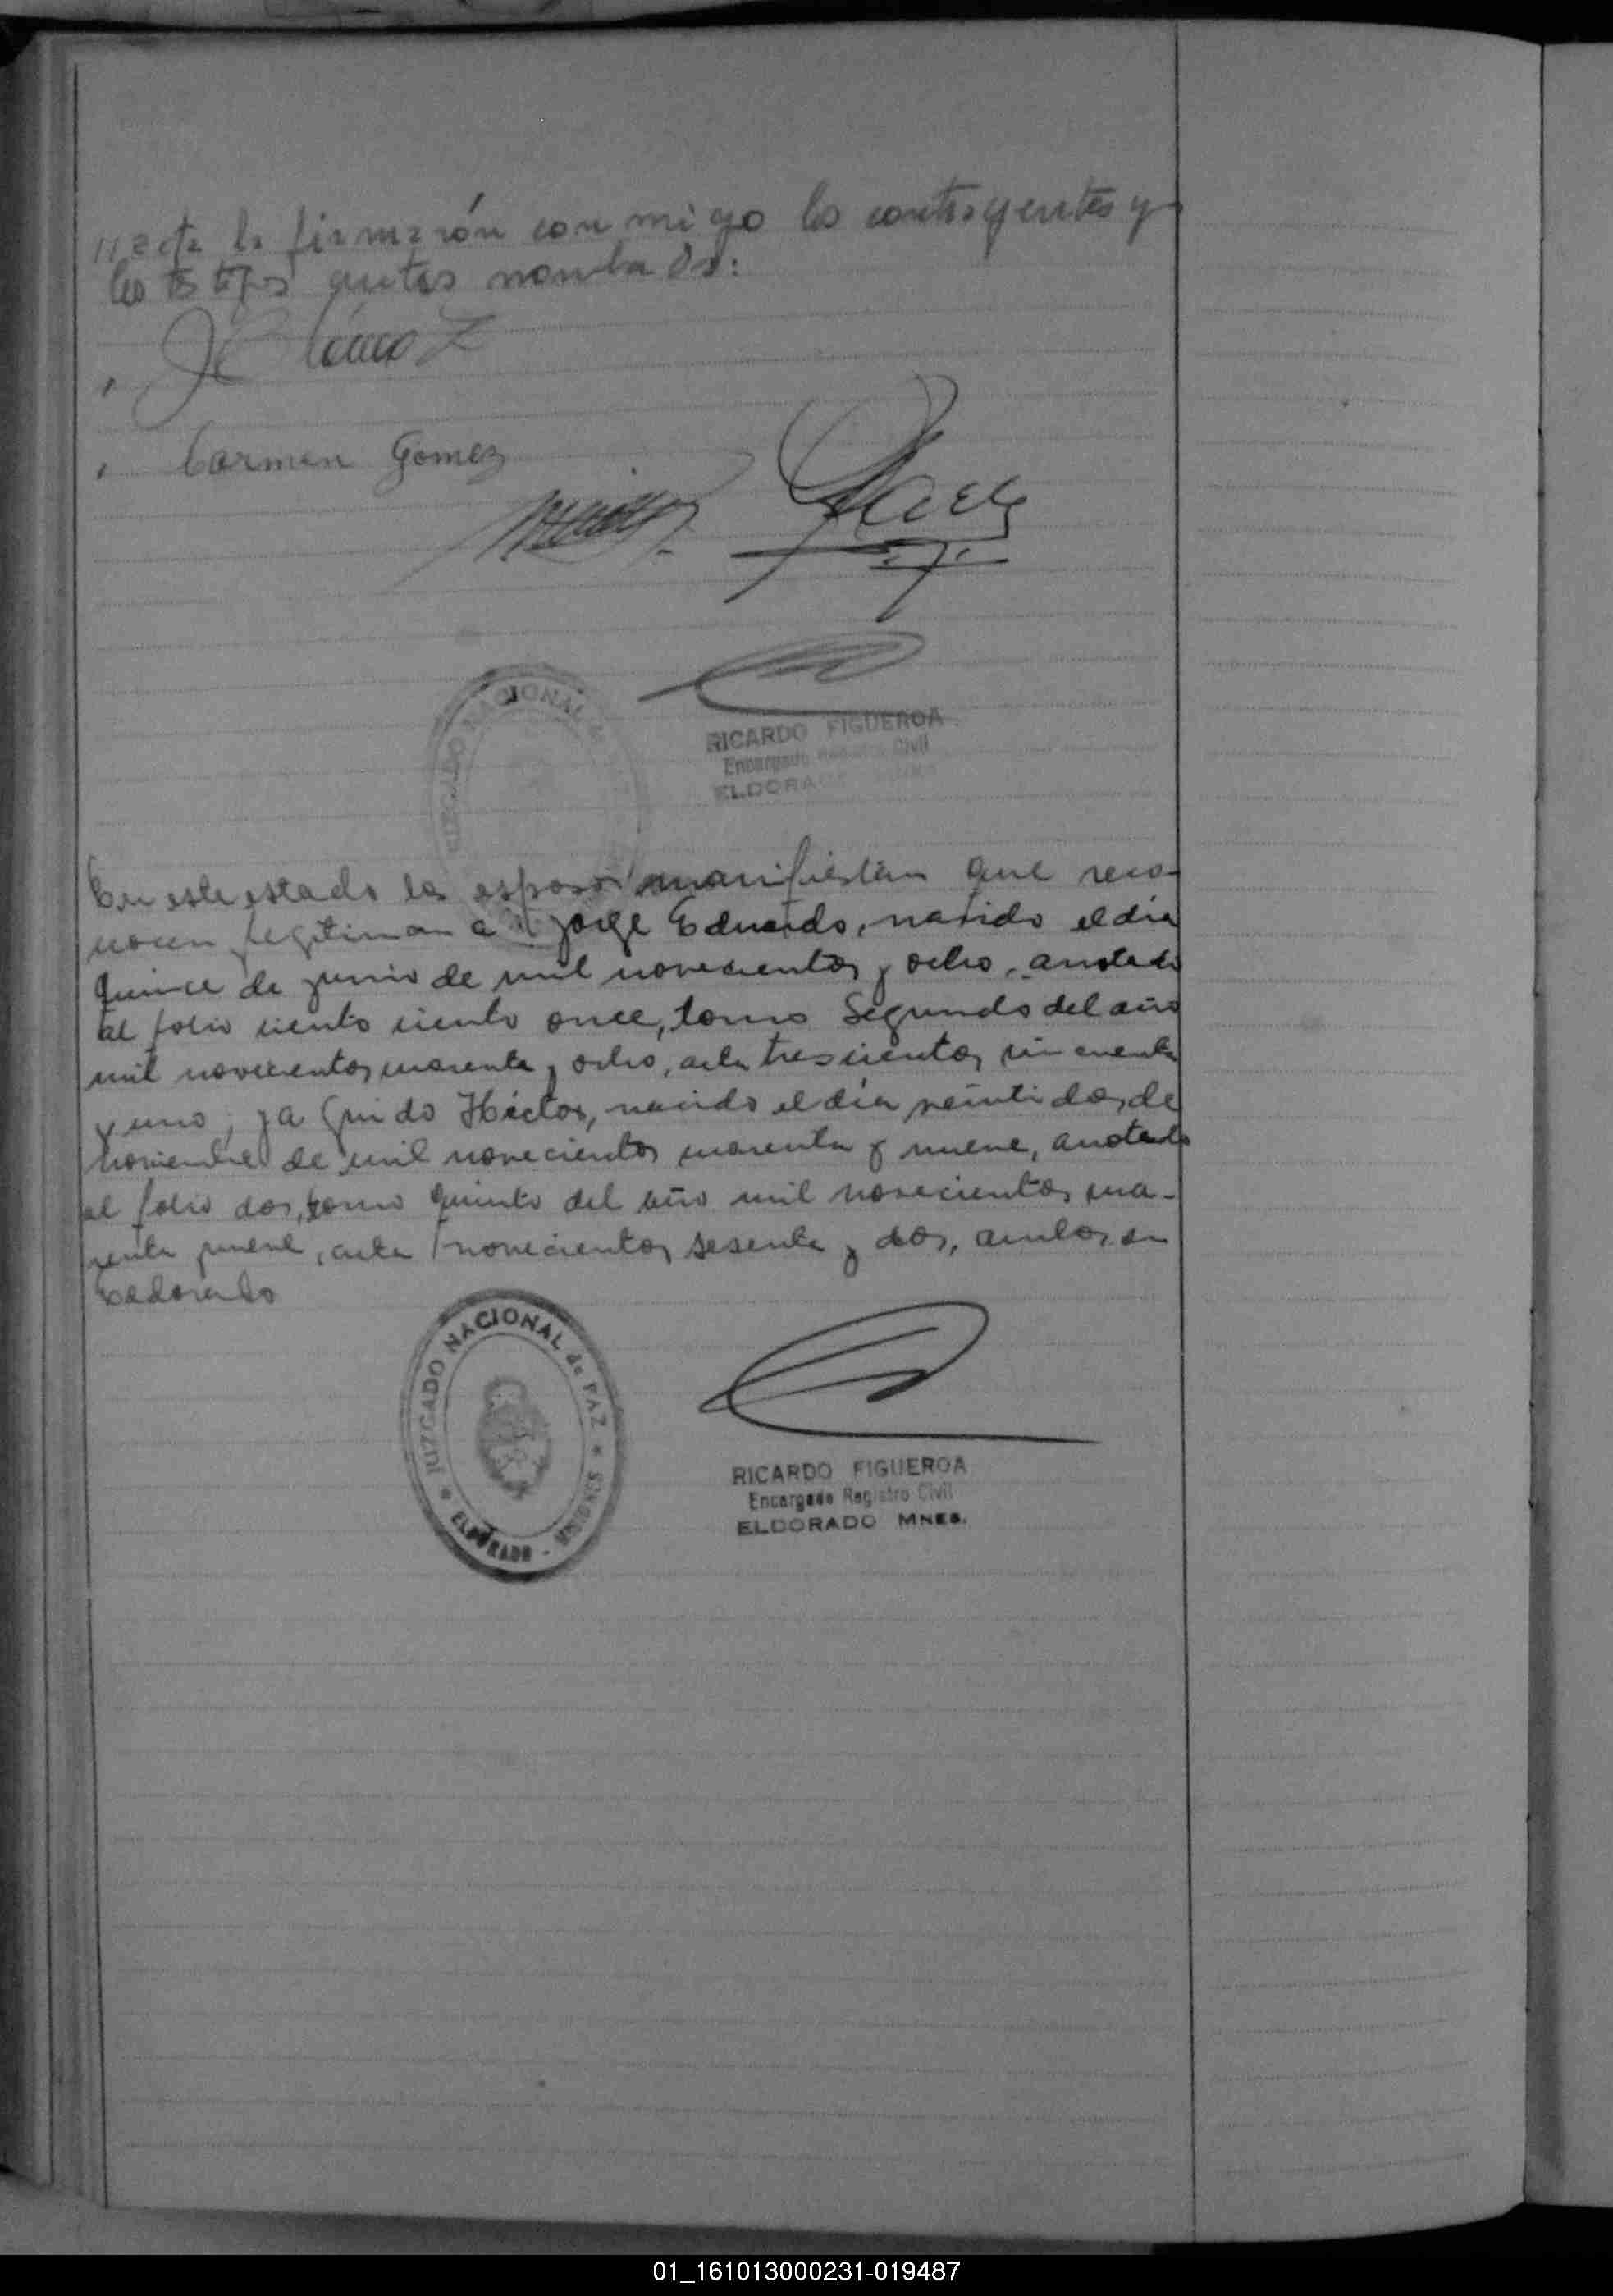 //acta la firmarón con migo los contrayentes y
los testigos antes nombrados:
Carmen Gomez
JUZGADO NACIONAL
RICARDO FIGUEROA
Encargado Registro Civil
ELDORADO
En este estado los esposos manifiestan que reco-
nocen y legitiman a Jorge Eduardo, nacido el día
quince de junio de mil novecientos y ocho, anotado
al folio ciento ciento once, tomo Segundo del año
mil novecientos cuarenta y ocho, acta trescientos cincuenta
y uno, y a Guido Héctor, nacido el día veintidos de
noviembre de mil novecientos cuarenta y nueve, anotado
al folio dos, tomo quinto del año mil novecientos cua-
renta y nueve, acta novecientos sesenta y dos, ambos en
Eldorado
JUZGADO NACIONAL de PAZ * ELDORADO - MISIONES *
RICARDO FIGUEROA
Encargado Registro Civil
ELDORADO MNES.
01_161013000231-019487